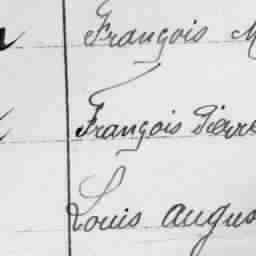 François
François Pierre
Louis Augus